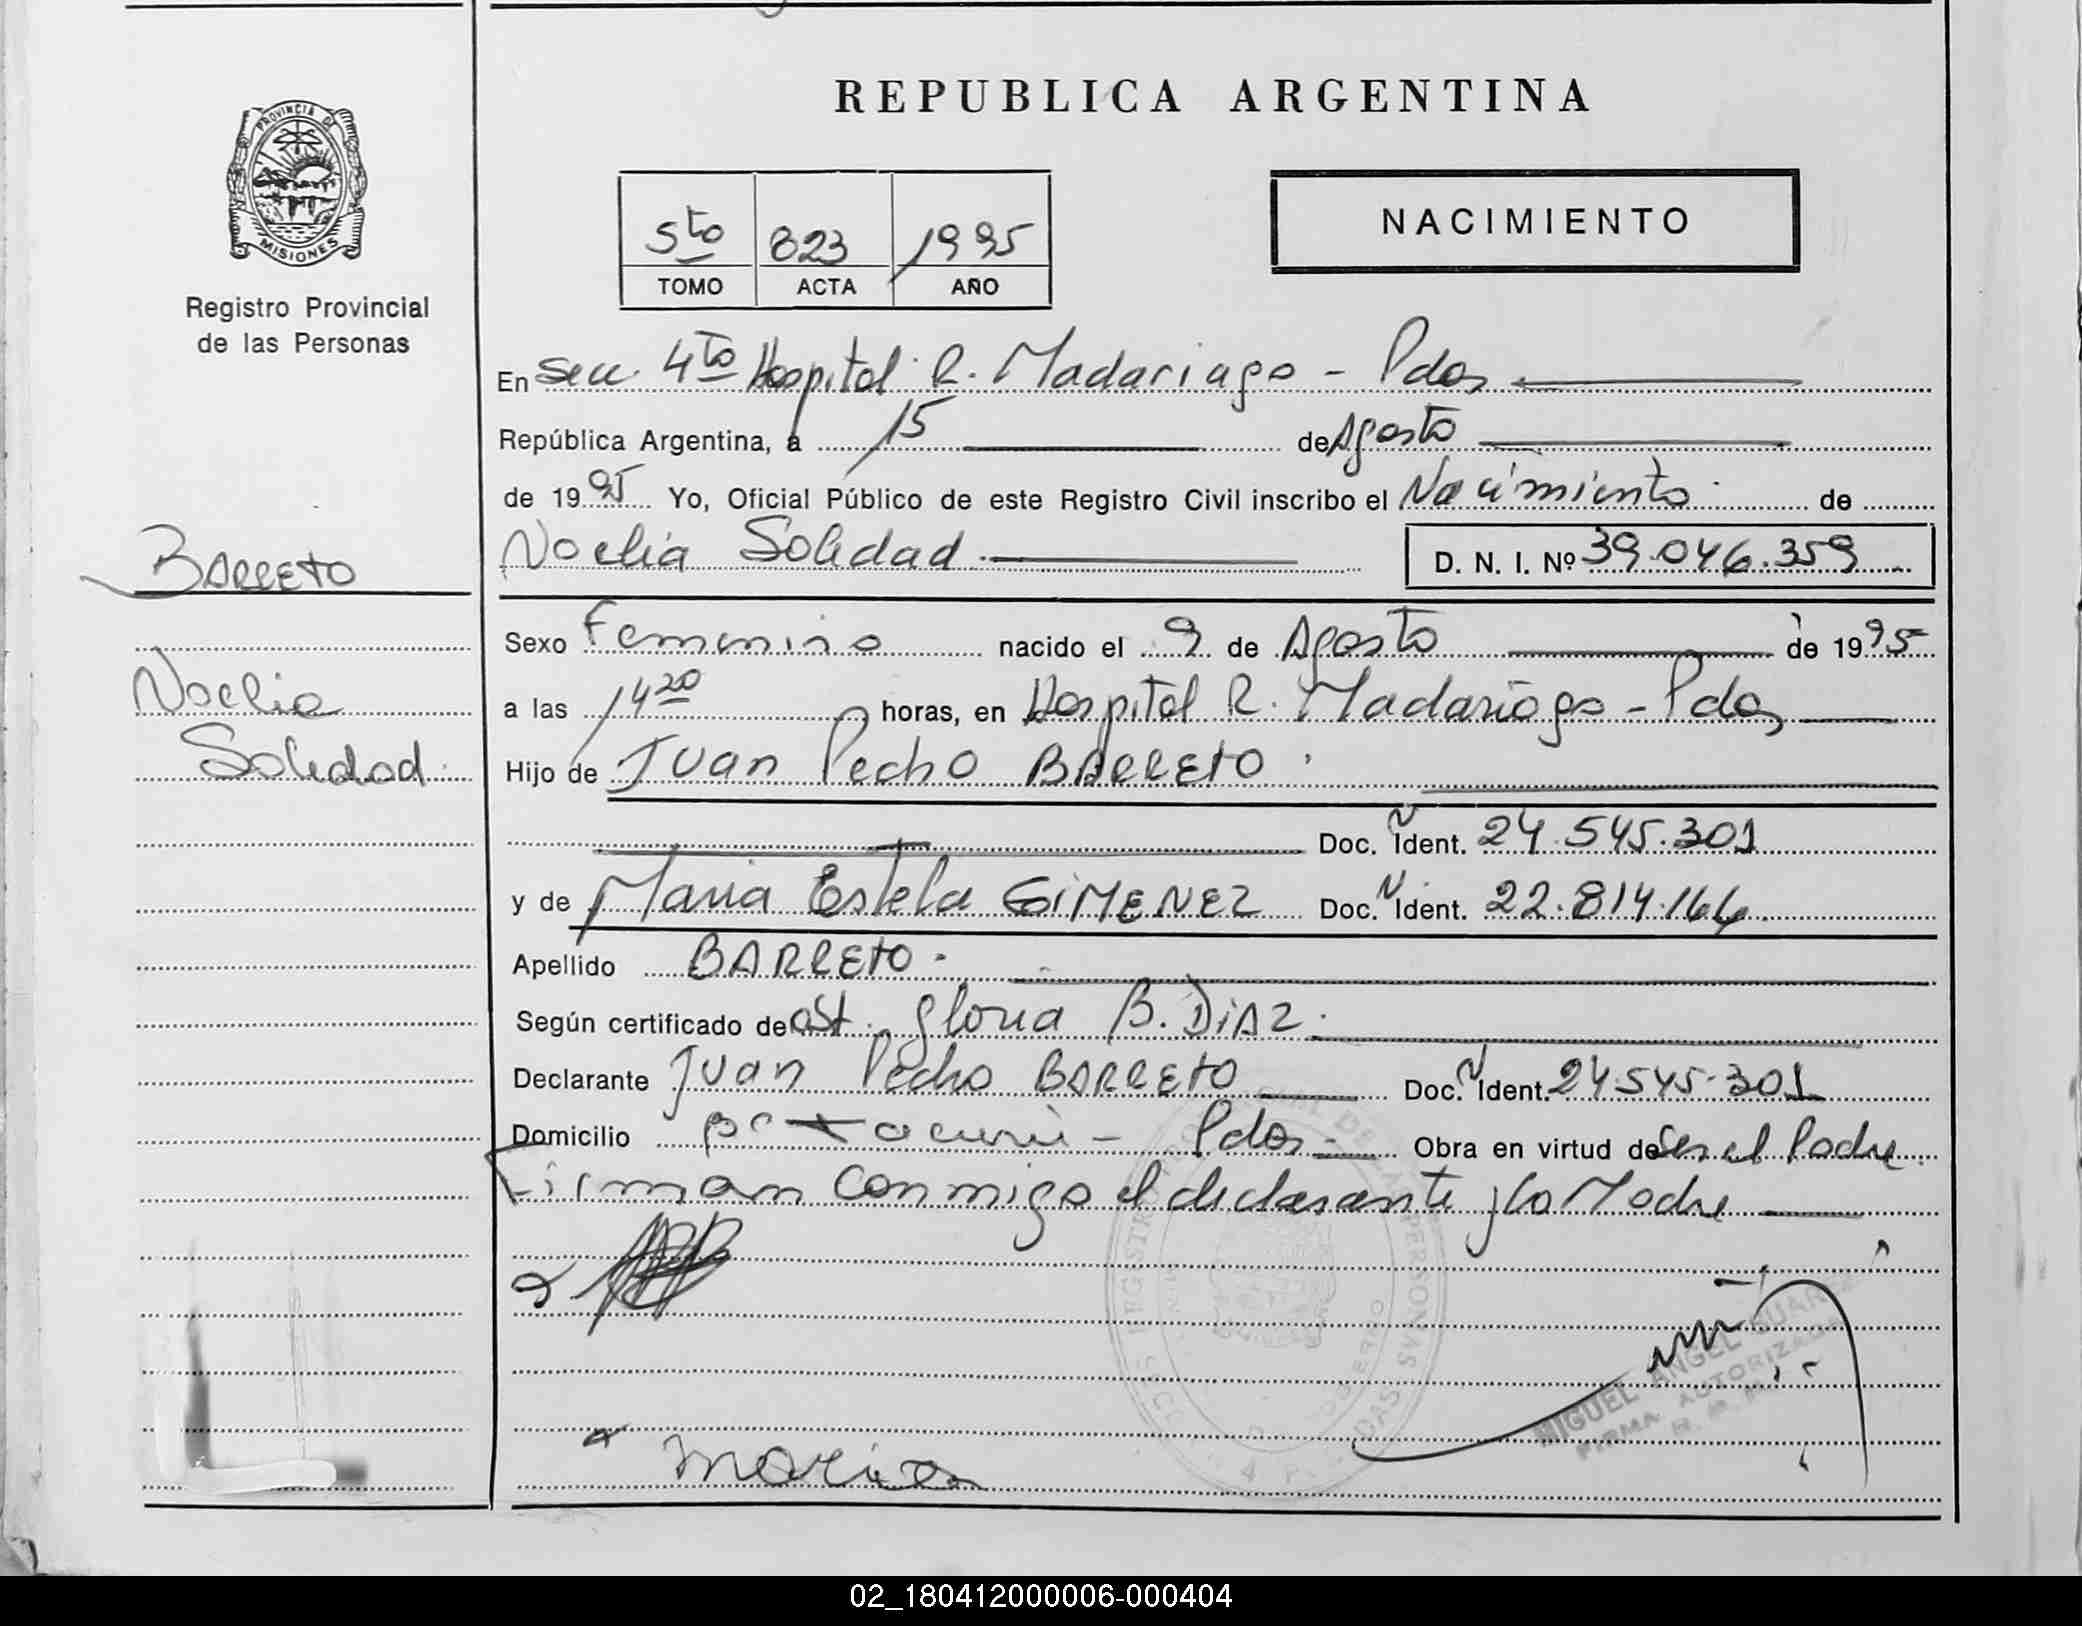 REPUBLICA ARGENTINA
PROVINCIA DE
MISIONES
Registro Provincial
de las Personas
5to 823 1995
TOMO ACTA AÑO
NACIMIENTO
En Secc. 4to Hospital R. Madariaga - Pdas
República Argentina, a 15 de Agosto
de 1995 Yo, Oficial Público de este Registro Civil inscribo el Nacimiento de
BARRETO
Noelia Soledad D. N. I. Nº 39.046.359
Sexo Femenino nacido el 9 de Agosto de 1995
Noelia
a las 14 20 horas, en Hospital R. Madariaga - Pdas
Soledad
Hijo de Juan Pedro BARRETO
Doc. N Ident. 24.545.301
y de Maria Estela GIMENEZ Doc. N Ident. 22.814.164
Apellido BARRETO
Según certificado de Ost. Gloria B. DIAZ
Declarante Juan Pedro BARRETO Doc. N Ident. 24.545.301
Domicilio - Pdas - Obra en virtud de Ser el Padre
Firman conmigo el declarante y la Madre
MIGUEL ANGEL
FIRMA AUTORIZADA
R. P. P.
Maria
02_180412000006-000404